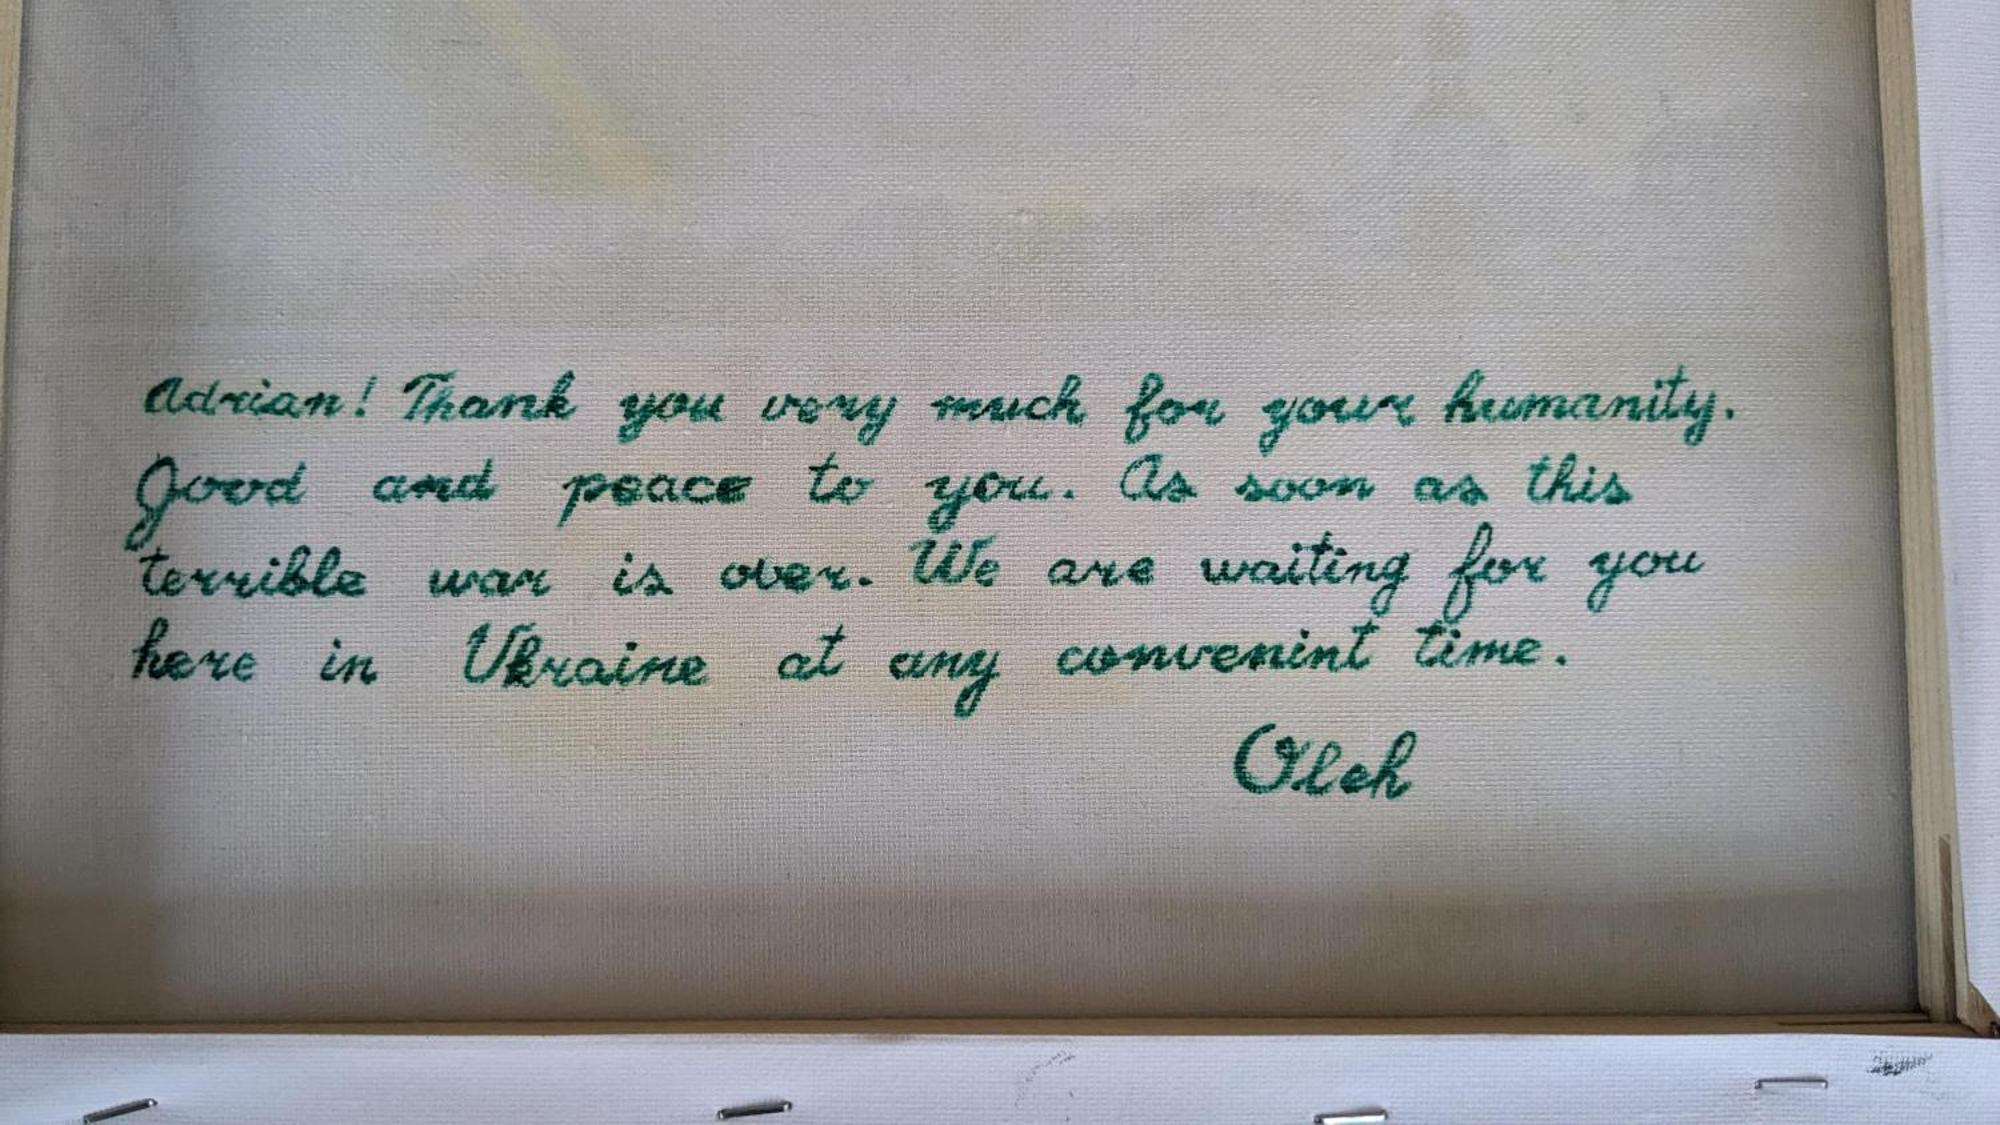 Adrian! Thank you very much for your humanity.
Good and peace to you. As soon as this
terrible war is over. We are waiting for you
here in Ukraine at any convenint time.
Oleh